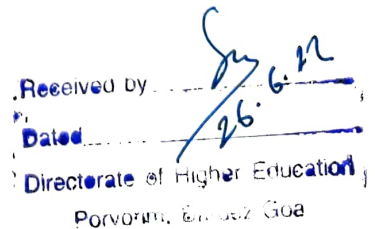 Received by
Dated 26.6.22
Directorate of Higher Education
Porvorim, Goa